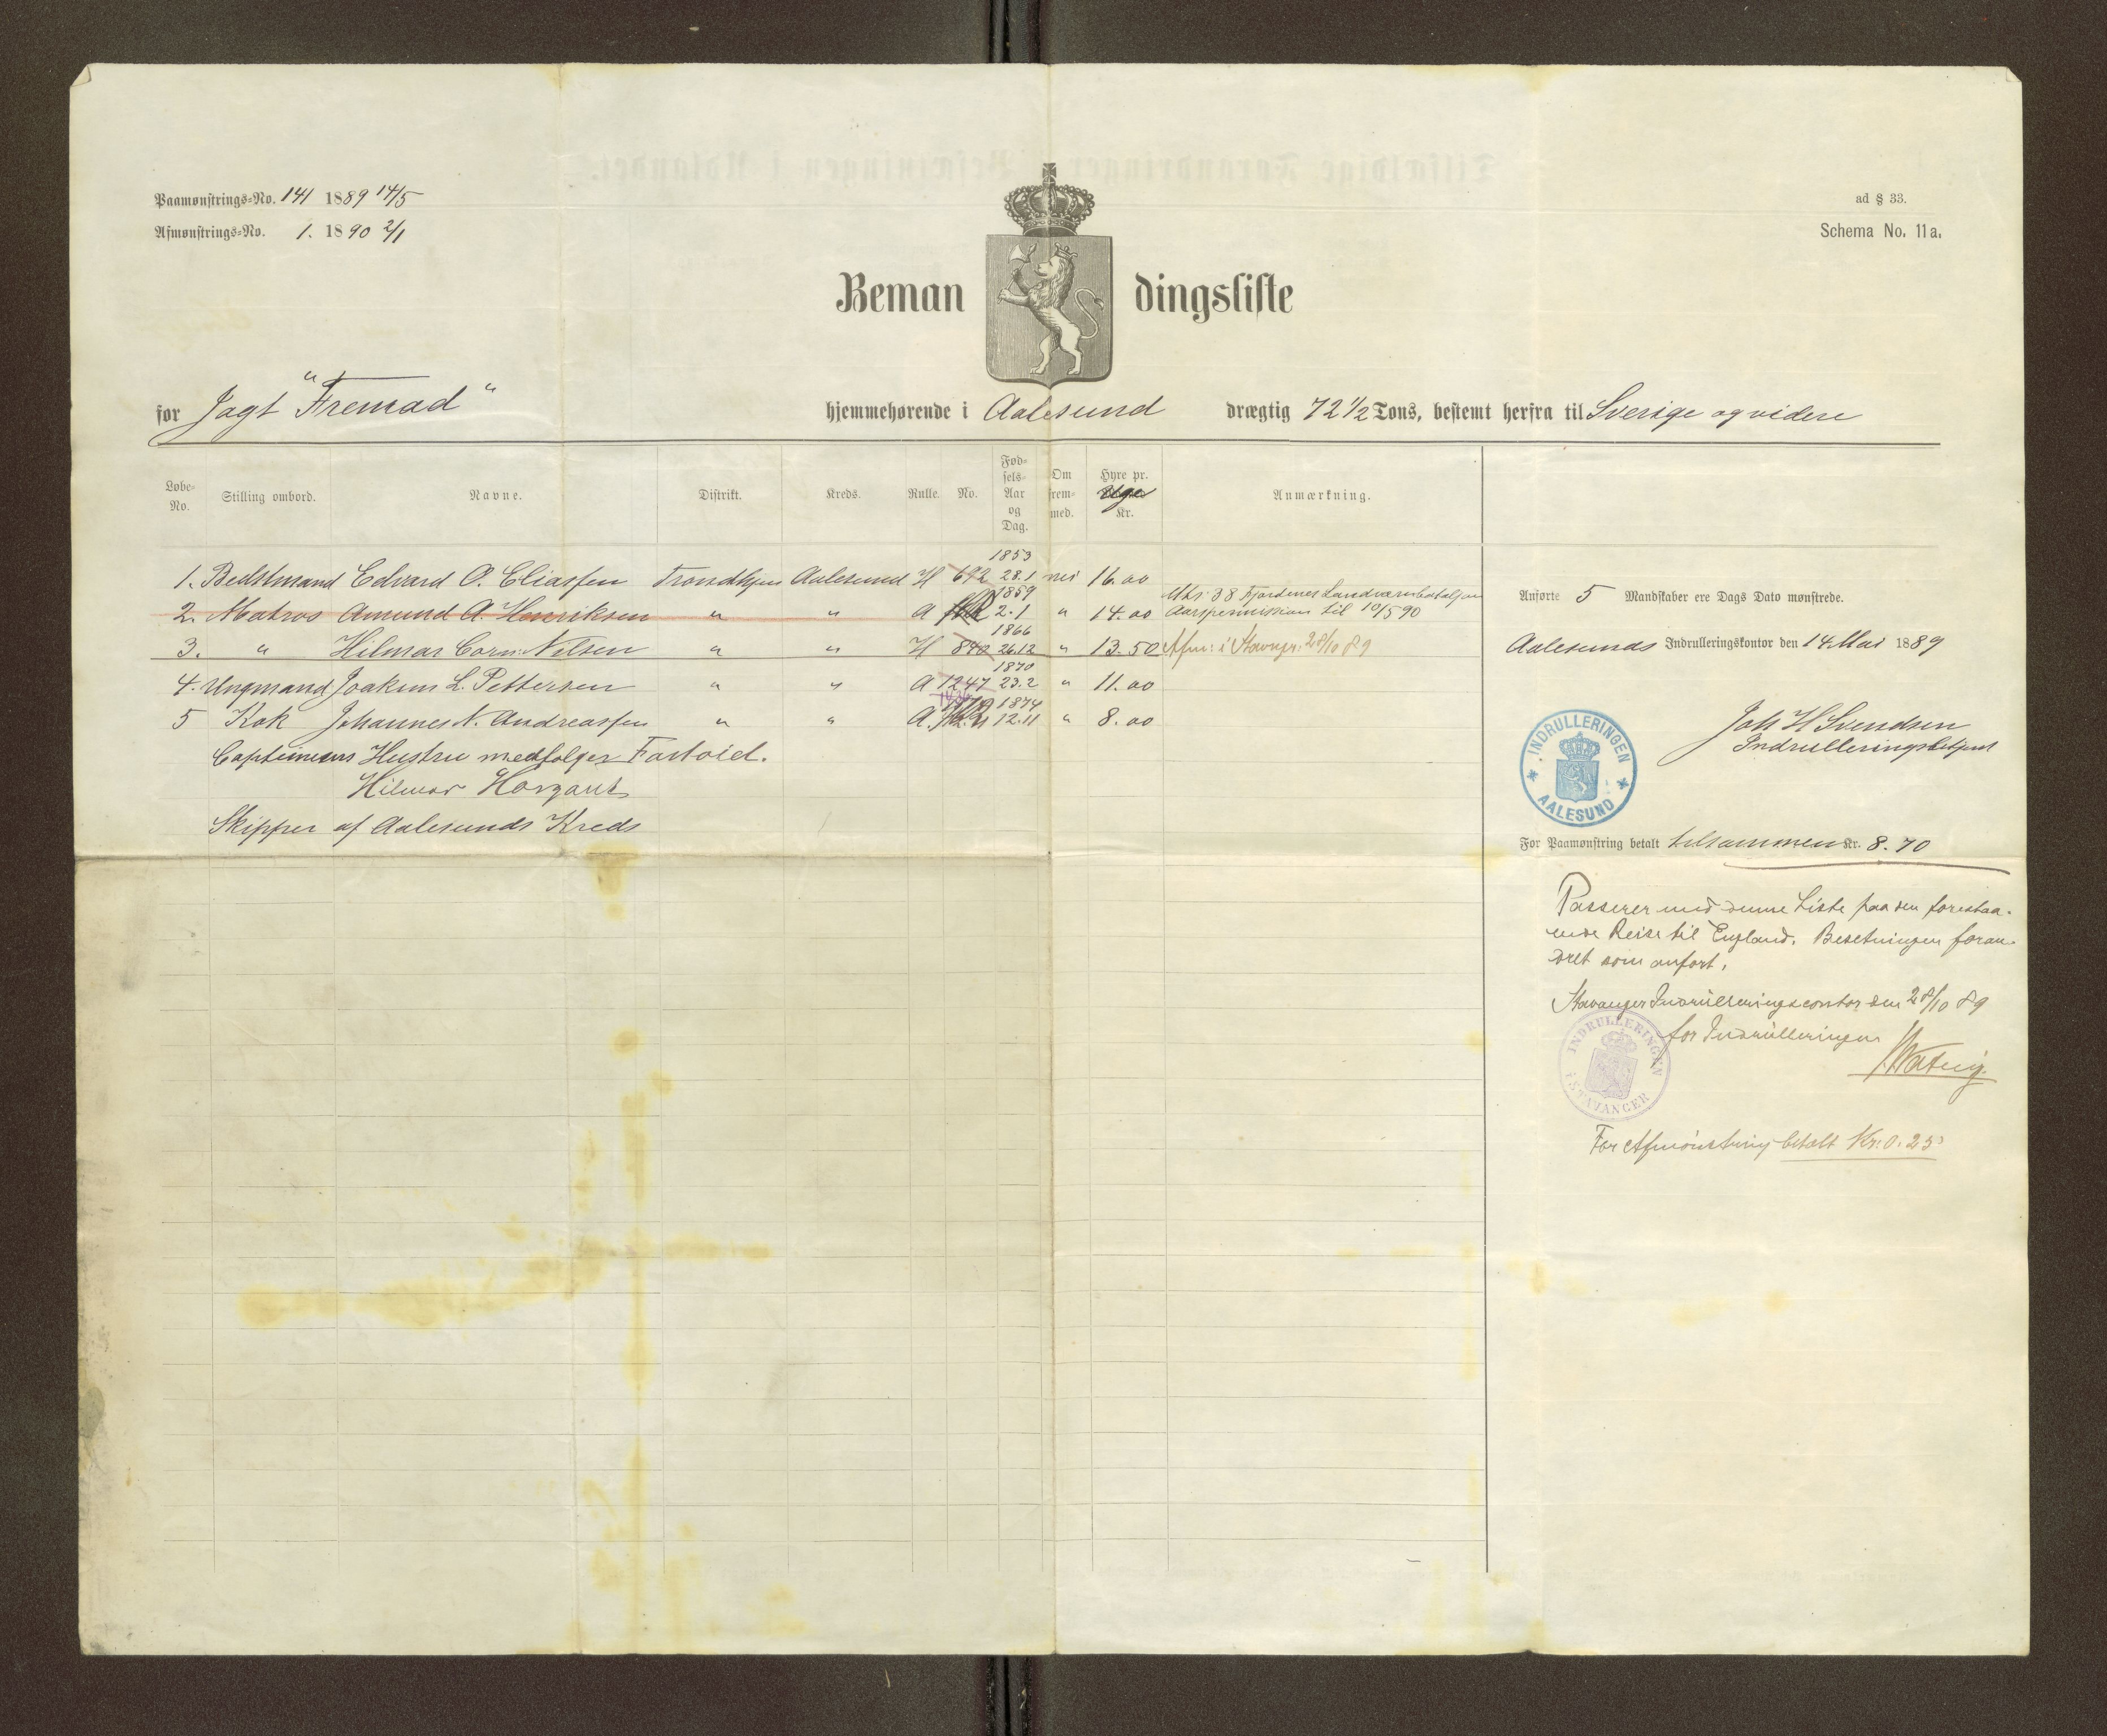 Paamønstrings-No. 141 1889 14/5
Afmønstrings-No. 1. 1890 2/1
ad § 33.
Schema No. 11a.
Bemandingsliste
for Jagt "Fremad" hjemmehørende i Aalesund drægtig 72 1/2 Tons, bestemt herfra til Sverige og videre
Løbe-No. Stilling ombord. Navne. Distrikt. Kreds. Rulle. No. Fødsels-Aar og Dag. Om frem-med. Hyre pr. Kr. Anmærkning.
1. Bedstmand Edvard O. Eliassen Trondhjem Aalesund H 692 1853 28.1 nei 16.00
2. Matros Amund A. Henriksen " " A 1859 2.1 " 14.00 Utkr: 38 Fjordenes Landværnsbataljon Aarspermission til 10/5 90
3. " Hilmar Corn: Nilsen " " H 840 1866 26.12 " 13.50 Afm: i Stavgr. 28/10 89
4. Ungmand Joakim L. Pettersen " " A 1247 1870 23.2 " 11.00
5 Kok Johannes N. Andreassen " " A. 1874 12.11 " 8.00
Capteinens Hustru medfølger
Hilmar
Skipper af Aalesunds Kreds
Anførte 5 Mandskaber ere Dags Dato mønstrede.
Aalesunds Indrulleringskontor den 14 Mai 1889
Joh H Svendsen
Indrulleringsbetjent
INDRULLERINGEN AALESUND
For Paamønstring betalt tilsammen Kr. 8.70
Passerer med denne Liste paa den forestaa-
ende Reise til England. Besetningen foran-
dret som anført.
Stavanger Indrulleringscontor den 28/10 89
for Indrulleringen
INDRULLERINGEN I STAVANGER
For Afmönstring betalt Kr: 0.25